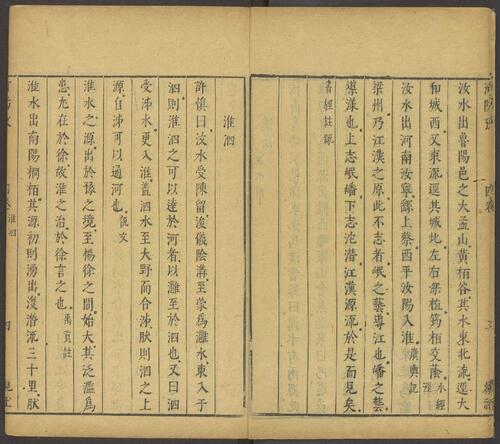 汝水出魯陽邑之大盂山黃栢谷其水東北流逕大
和城西又東流逕其城北左右深栢筠相交蔭水經
汝水出河南汝寧縣上蔡西平汝陽入淮廣輿記
梁州乃江漢之原此不志者岷之藝導江也嶓之藝
導漾也上志岷嶓下志沱潛江漢源流於是而見矣
書經註疏
淮泗
許慎曰汶水受陳留浚儀陰溝至蒙為灉水東入于
泗則淮泗之可以達於河者以灉至於泗也又曰泗
受泲水更入淮蓋泗水至大野而合泲肰則泗之上
源自泲可以通河也說文
淮水之源出於豫之境至楊徐之間始大其泛濫為
患尢在於徐故淮之治於徐言之也禹貢註
淮水出南陽桐栢其源初則湧出復潛流三十里肰
淮泗
四